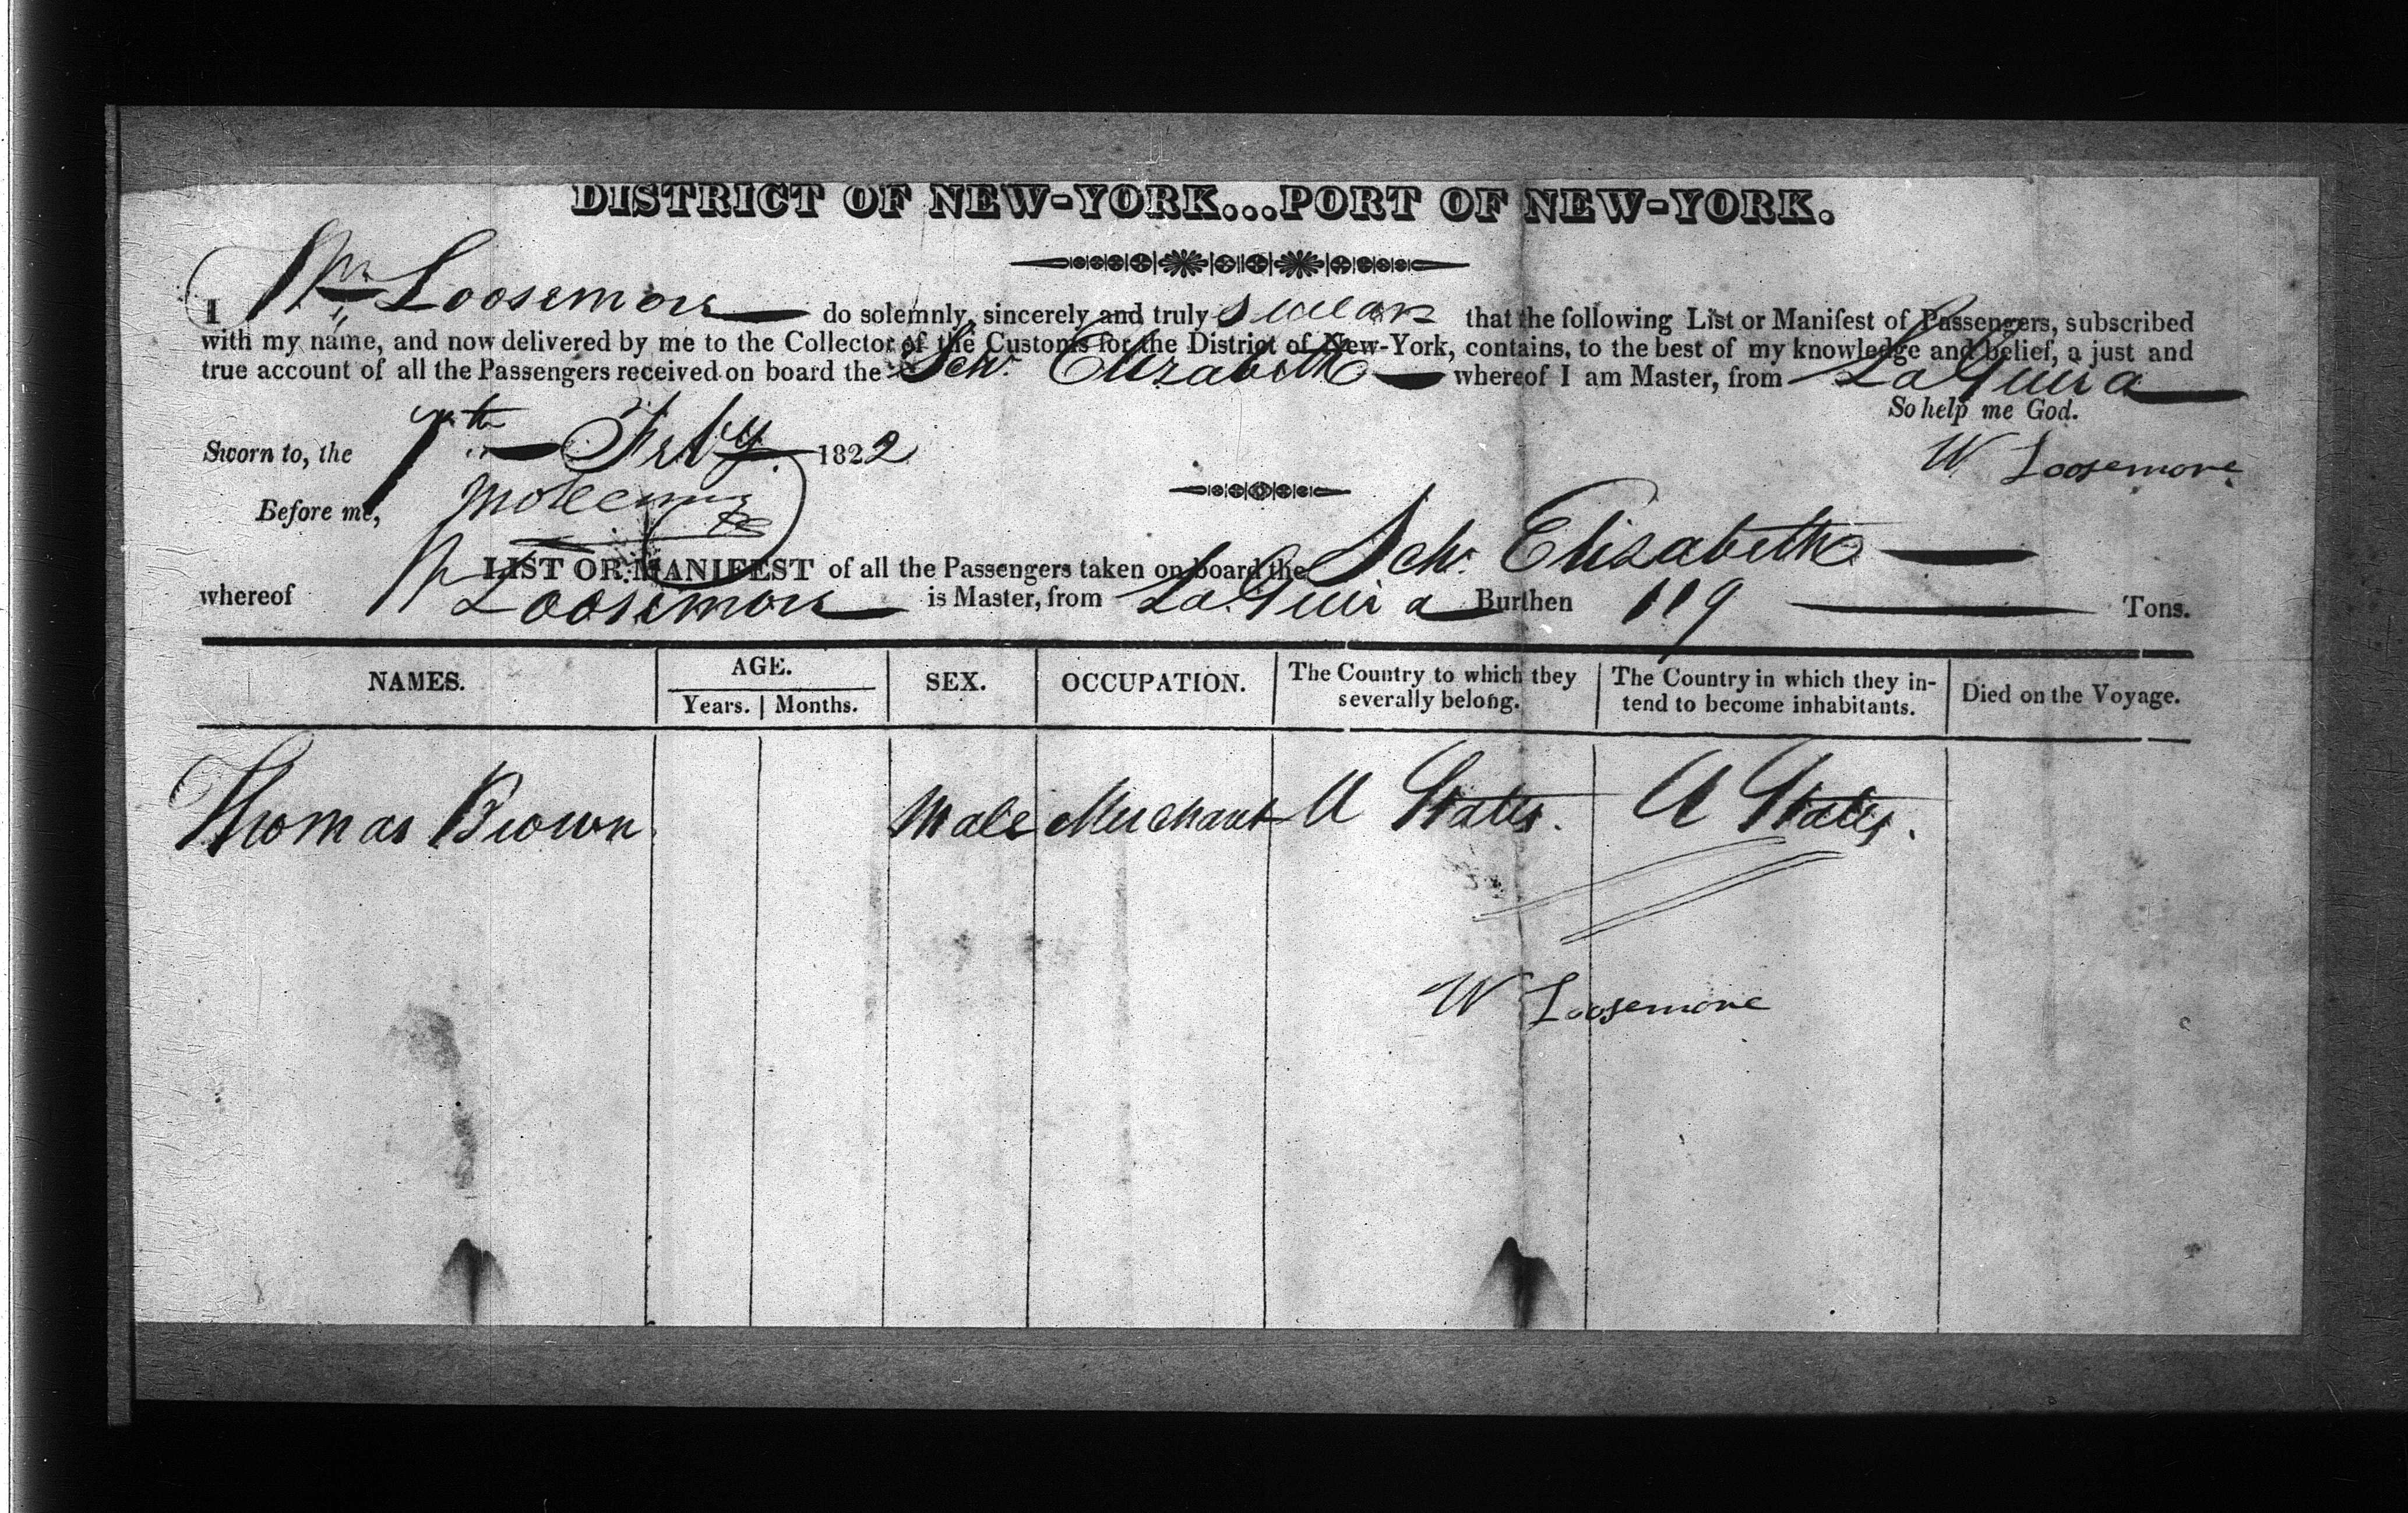 DISTRICT OF NEW-YORK...PORT OF NEW-YORK.
I Wm Loosemore do solemnly, sincerely and truly swear that the following List or Manifest of Passengers, subscribed
with my name, and now delivered by me to the Collector of the Customs for the District of New-York, contains, to the best of my knowledge and belief, a just and
true account of all the Passengers received on board the Schr. Elizabeth whereof I am Master, from LaGuira
So help me God.
Sworn to, the 7th Feby 1822
W Loosemore
Before me,
LIST OR MANIFEST of all the Passengers taken on board the Schr. Elizabeth
whereof W Loosemore is Master, from LaGuira Burthen 119 Tons.
NAMES. AGE. SEX. OCCUPATION. The Country to which they severally belong. The Country in which they intend to become inhabitants. Died on the Voyage.
Years. Months.
Thomas Brown Male Merchant U States. U States.
W Loosemore